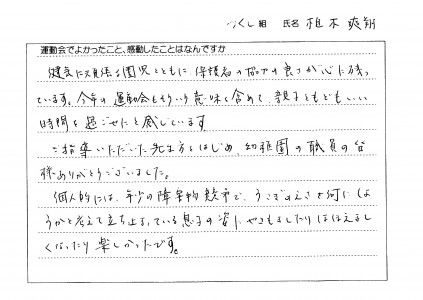 つくし組 氏名 柏木
運動会でよかったこと、感動したことはなんですか
健気に頑張る園児とともに、保護者の協力の良さが心に残っ
ています。今年の運動会もそういう意味も含めて、親子ともどもいい
時間を過ごせたと感じています
ご指導いただいた先生方をはじめ、幼稚園の職員の皆
様ありがとうございました。
個人的には、年少の障害物競争で、うさぎのえさを何にし
ようかと考えて立ち止まっている息子の姿に、やきもきしたりほほえまし
くなったり楽しかったです。